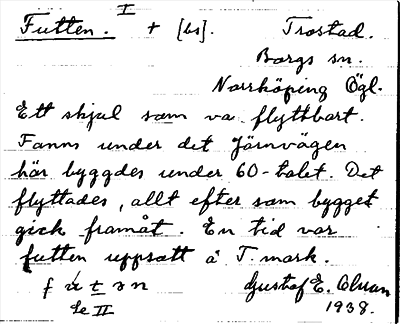 Futten. I + [bs]. Trostad.
Borgs sn.
Norrköping Ögl.
Ett skjul som va flyttbart.
Fanns under det Järnvägen
här byggdes under 60-talet. Det
flyttades, allt efter som bygget
gick framåt. En tid var
futten uppsatt å T. mark.
Gustaf E.
1938.